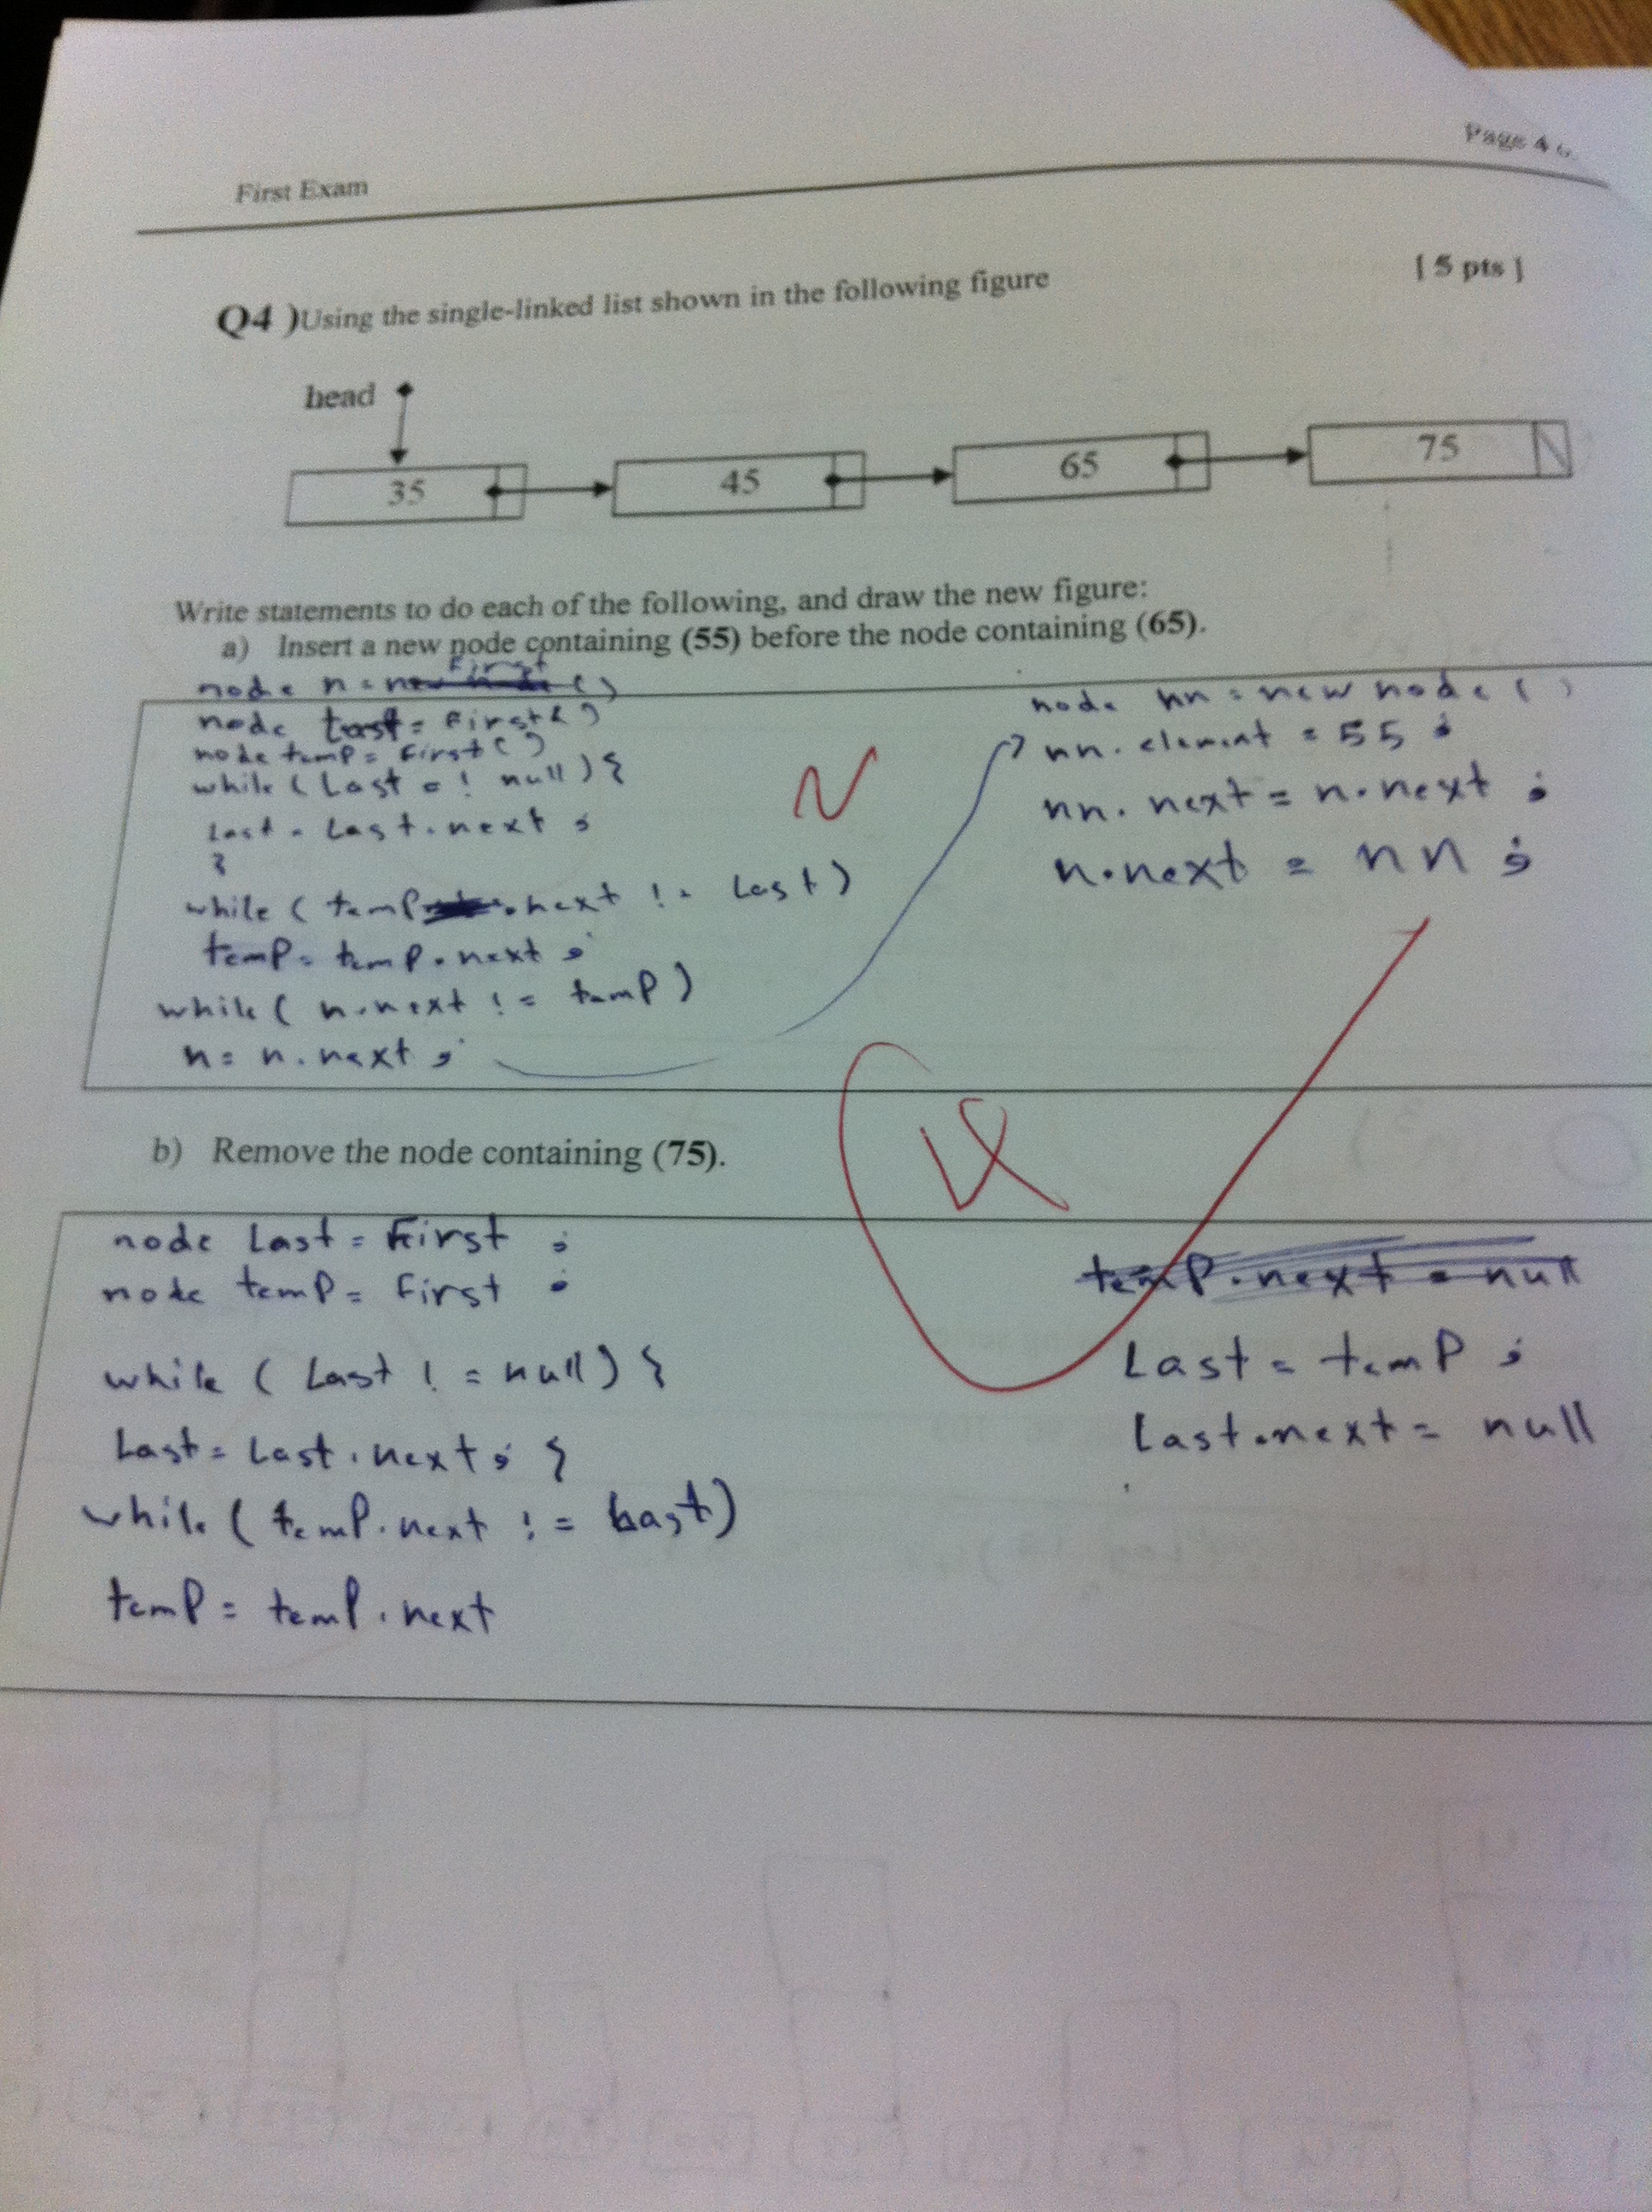 Page 4
First Exam
[ 5 pts ]
Q4 )Using the single-linked list shown in the following figure
head
35 45 65 75
Write statements to do each of the following, and draw the new figure:
a) Insert a new node containing (55) before the node containing (65).
node n = First ()
node last = First()
node temp = First()
while (Last = ! null) {
Last = Last.next ;
}
while ( temp.next != Last)
temp = temp.next ;
while ( n.next != temp)
n = n.next ;
node nn = new node ( )
nn.element = 55 ;
nn.next = n.next ;
n.next = nn ;
b) Remove the node containing (75).
node Last = First ;
node temp = First ;
while ( Last ! = null) {
Last = Last.next ; }
while ( temp.next != Last)
temp = temp.next
temp.next = null
Last = temp ;
Last.next = null